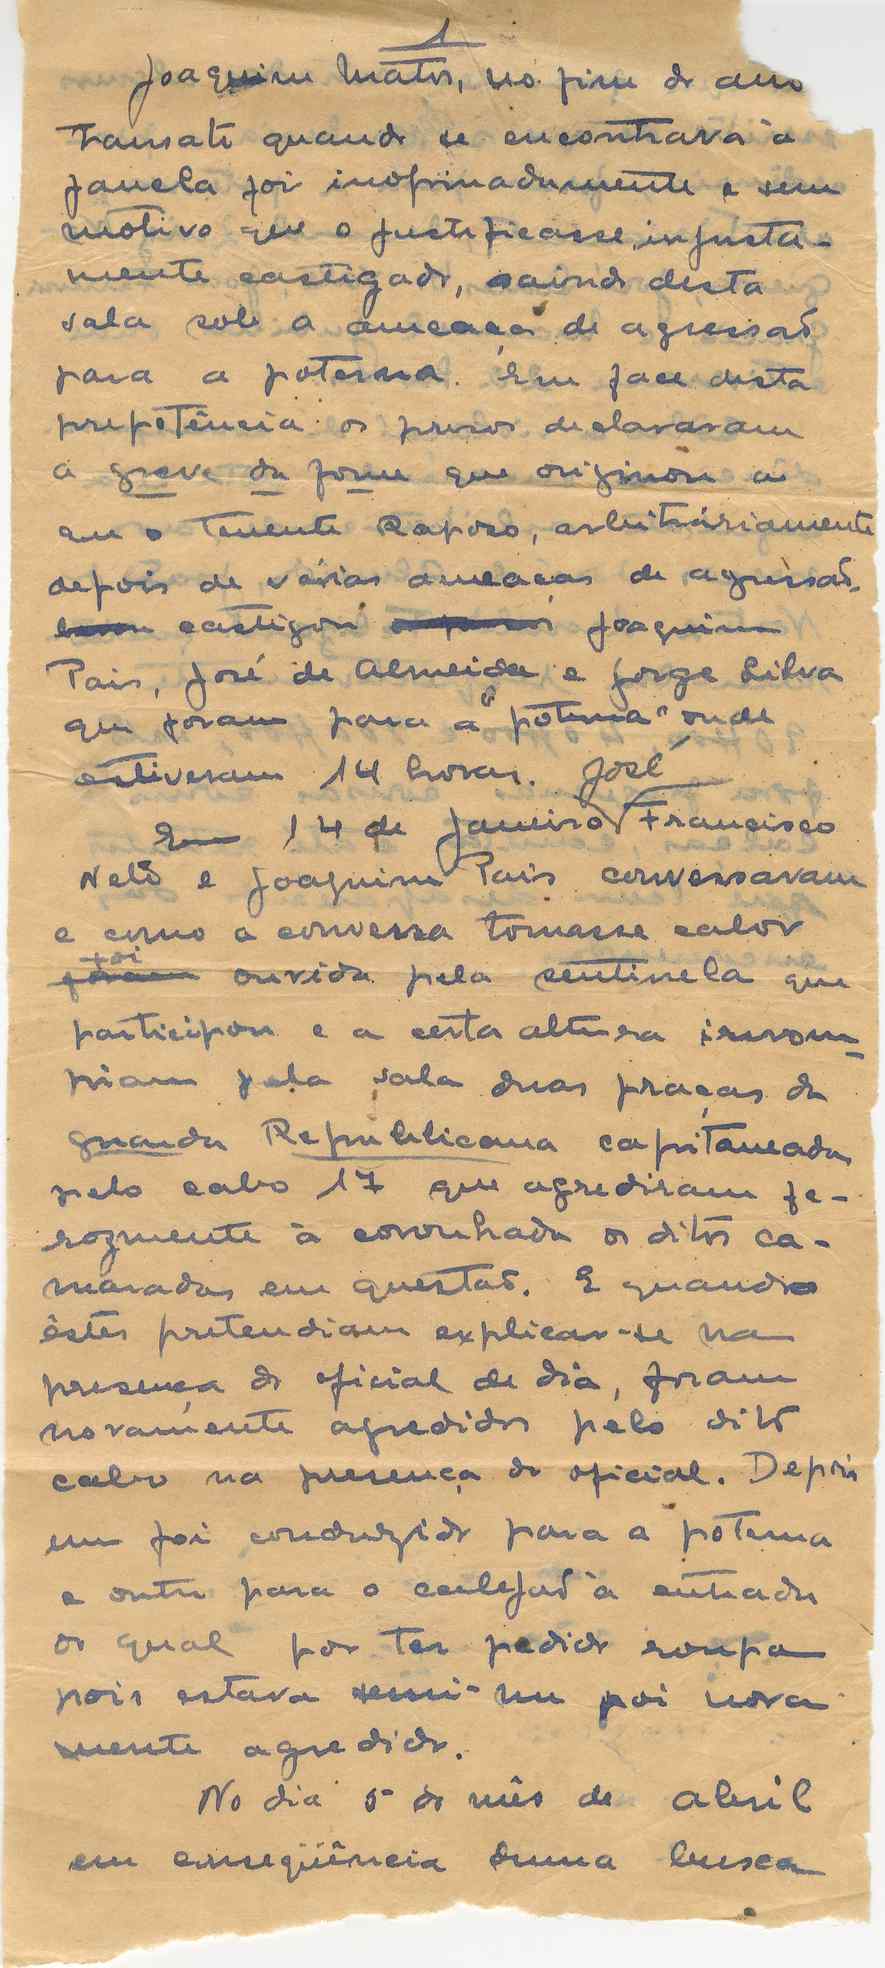 1
Joaquim Matos, no fim do ano
transato quando se encontrava à
janela foi inopinadamente e sem
motivo que o justificasse, injusta-
mente castigado, saindo desta
sala sob a ameaça de agressão
para a poterna. Em face desta
prepotência os presos declararam
a greve da fome que originou a
que o Tenente Raposo, arbitráriamente
depois de várias ameaças de agressão,
castigou Joaquim
Pais, José de Almeida e Jorge Silva
que foram para a "poterna" onde
estiveram 14 horas. José
Em 14 de Janeiro Francisco
Neto e Joaquim Pais conversavam
e como a conversa tomasse calor
foi
foram ouvida pela sentinela que
participou e a certa altura irrom-
piam pela sala duas praças da
guarda Republicana capitaneadas
pelo cabo 17 que agrediram fe-
rozmente à coronhada os ditos ca-
maradas em questão. E quando
êstes pretendiam explicar-se na
presença do oficial de dia, foram
novamente agredidos pelo dito
cabo na presença do oficial. Depois
um foi conduzido para a poterna
e outro para o calejão à entrada
o qual por ter pedido roupa
pois estava semi-nu foi nova
mente agredido.
No dia 5 do mês de Abril
em conseqüência duma busca